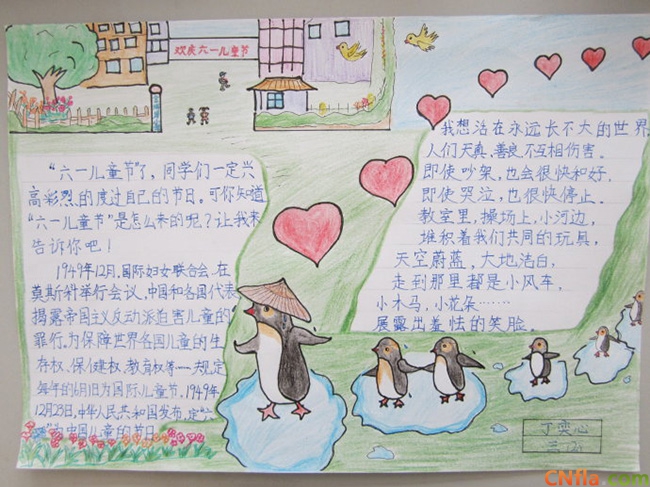 欢庆六一儿童节
“六一儿童节”了，同学们一定兴
高彩烈的度过自己的节日。可你知道
“六一儿童节”是怎么来的呢？让我来
告诉你吧！
1949年12月，国际妇女联合会，在
莫斯科举行会议，中国和各国代表
揭露帝国主义反动派迫害儿童的
罪行，为保障世界各国儿童的生
存权、保健权、教育权等……规定
每年的6月1日为国际儿童节，1949年
12月23日，中华人民共和国发布，定“六
为中国儿童的节日。
我想活在永远长不大的世界
人们天真、善良不互相伤害。
即使吵架，也会很快和好，
即使哭泣，也很快停止。
教室里，操场上，小河边，
堆积着我们共同的玩具，
天空蔚蓝，大地洁白，
走到那里都是小风车，
小木马，小花朵……
展露出羞怯的笑脸。
丁奕心
三
CNfla.com